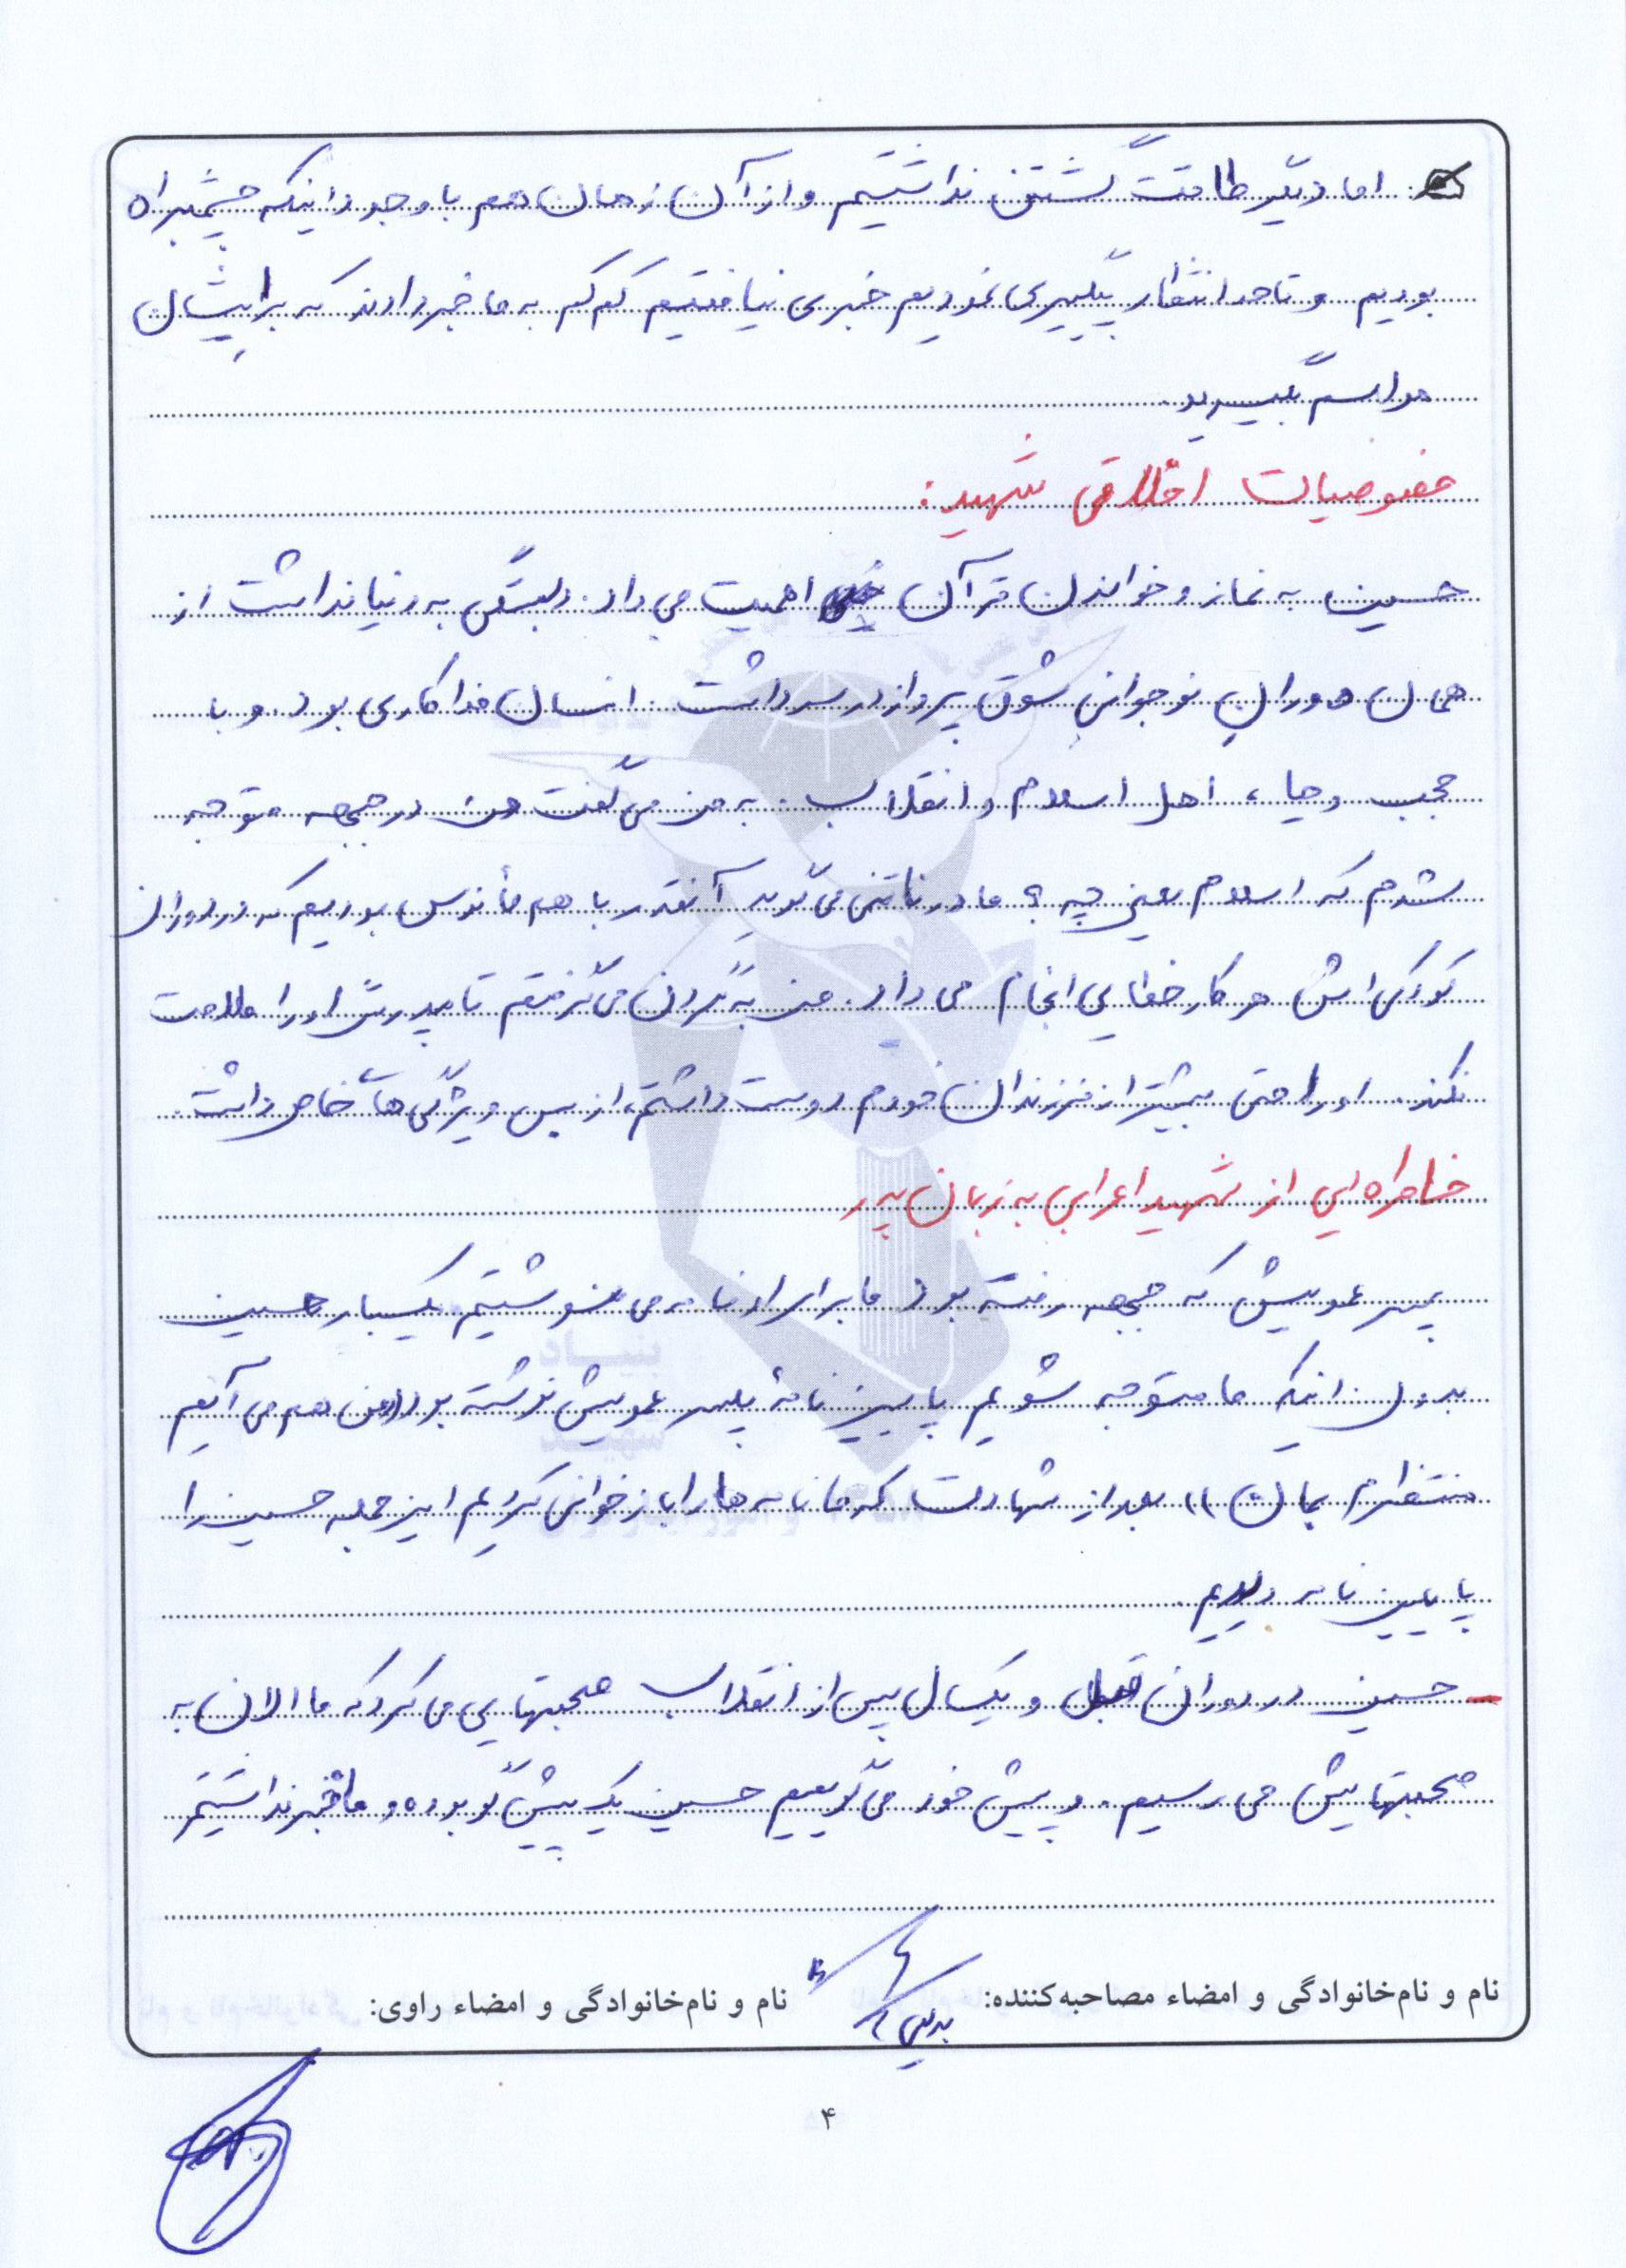 اما دیگر طاقت گشتن نداشتیم و از آن زمان هم با وجود اینکه چشم‌براه
بودیم و تا حد انتظار پیگیری نمودیم خبری نیافتیم کم‌کم به ما خبر دادند که برایشان
مراسم بگیرید.
خصوصیات اخلاقی شهید:
حسین به نماز و خواندن قرآن خیلی اهمیت می‌داد. دلبستگی به دنیا نداشت از
همان دوران نوجوانی شوق پرواز در سر داشت. انسان فداکاری بود. و با
حجب و حیا، اهل اسلام و انقلاب. به من می‌گفت من در جبهه متوجه
شدم که اسلام یعنی چه؟ مادر ناتنی می‌گوید آنقدر با هم مأنوس بودیم که در دوران
کودکی‌اش هر کار خطایی انجام می‌داد. من به گردن می‌گرفتم تا پدرش او را ملامت
نکند. او را حتی بیشتر از فرزندان خودم دوست داشتم، از بس ویژگی‌های خاص داشت.
خاطره‌ایی از شهید اعرابی به زبان پدر
پسر عمویش که جبهه رفته بود ما برای او نامه می‌نوشتیم یکبار حسین
بدون اینکه ما متوجه شویم پایین نامهٔ پسر عمویش نوشته بود «من هم می‌آیم
منتظرم بمان» بعد از شهادت که ما نامه‌ها را بازخوانی کردیم این جمله حسین را
پایین نامه دیدیم.
– حسین در دوران قبل و یکسال پس از انقلاب صحبتهایی می‌کرد که ما الان به
صحبتهایش می‌رسیم. و پیش خود می‌گوییم حسین یک پیش‌گو بوده و ما خبر نداشتیم
نام و نام‌خانوادگی و امضاء مصاحبه‌کننده:
نام و نام‌خانوادگی و امضاء راوی:
۴